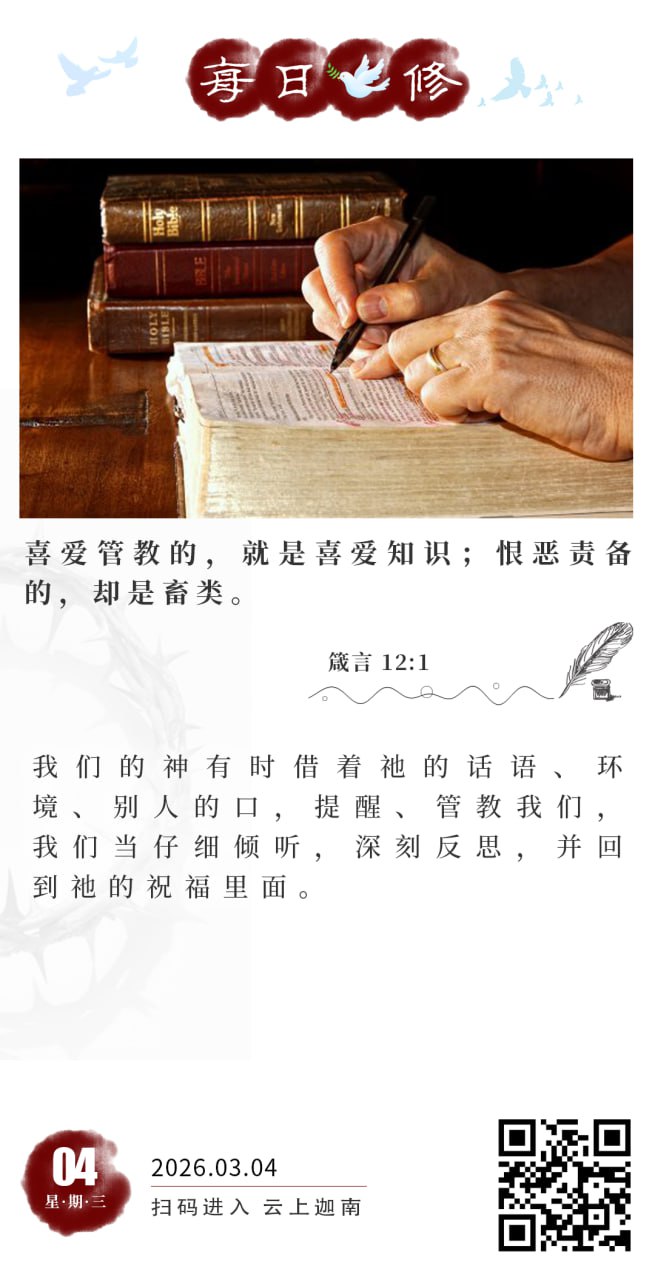 每日修
Holy
Bible
BIBLE
HOLY
BIBLE
喜爱管教的，就是喜爱知识；恨恶责备
的，却是畜类。
箴言 12:1
我们的神有时借着祂的话语、环
境、别人的口，提醒、管教我们，
我们当仔细倾听，深刻反思，并回
到祂的祝福里面。
04
星·期·三
2026.03.04
扫码进入 云上迦南